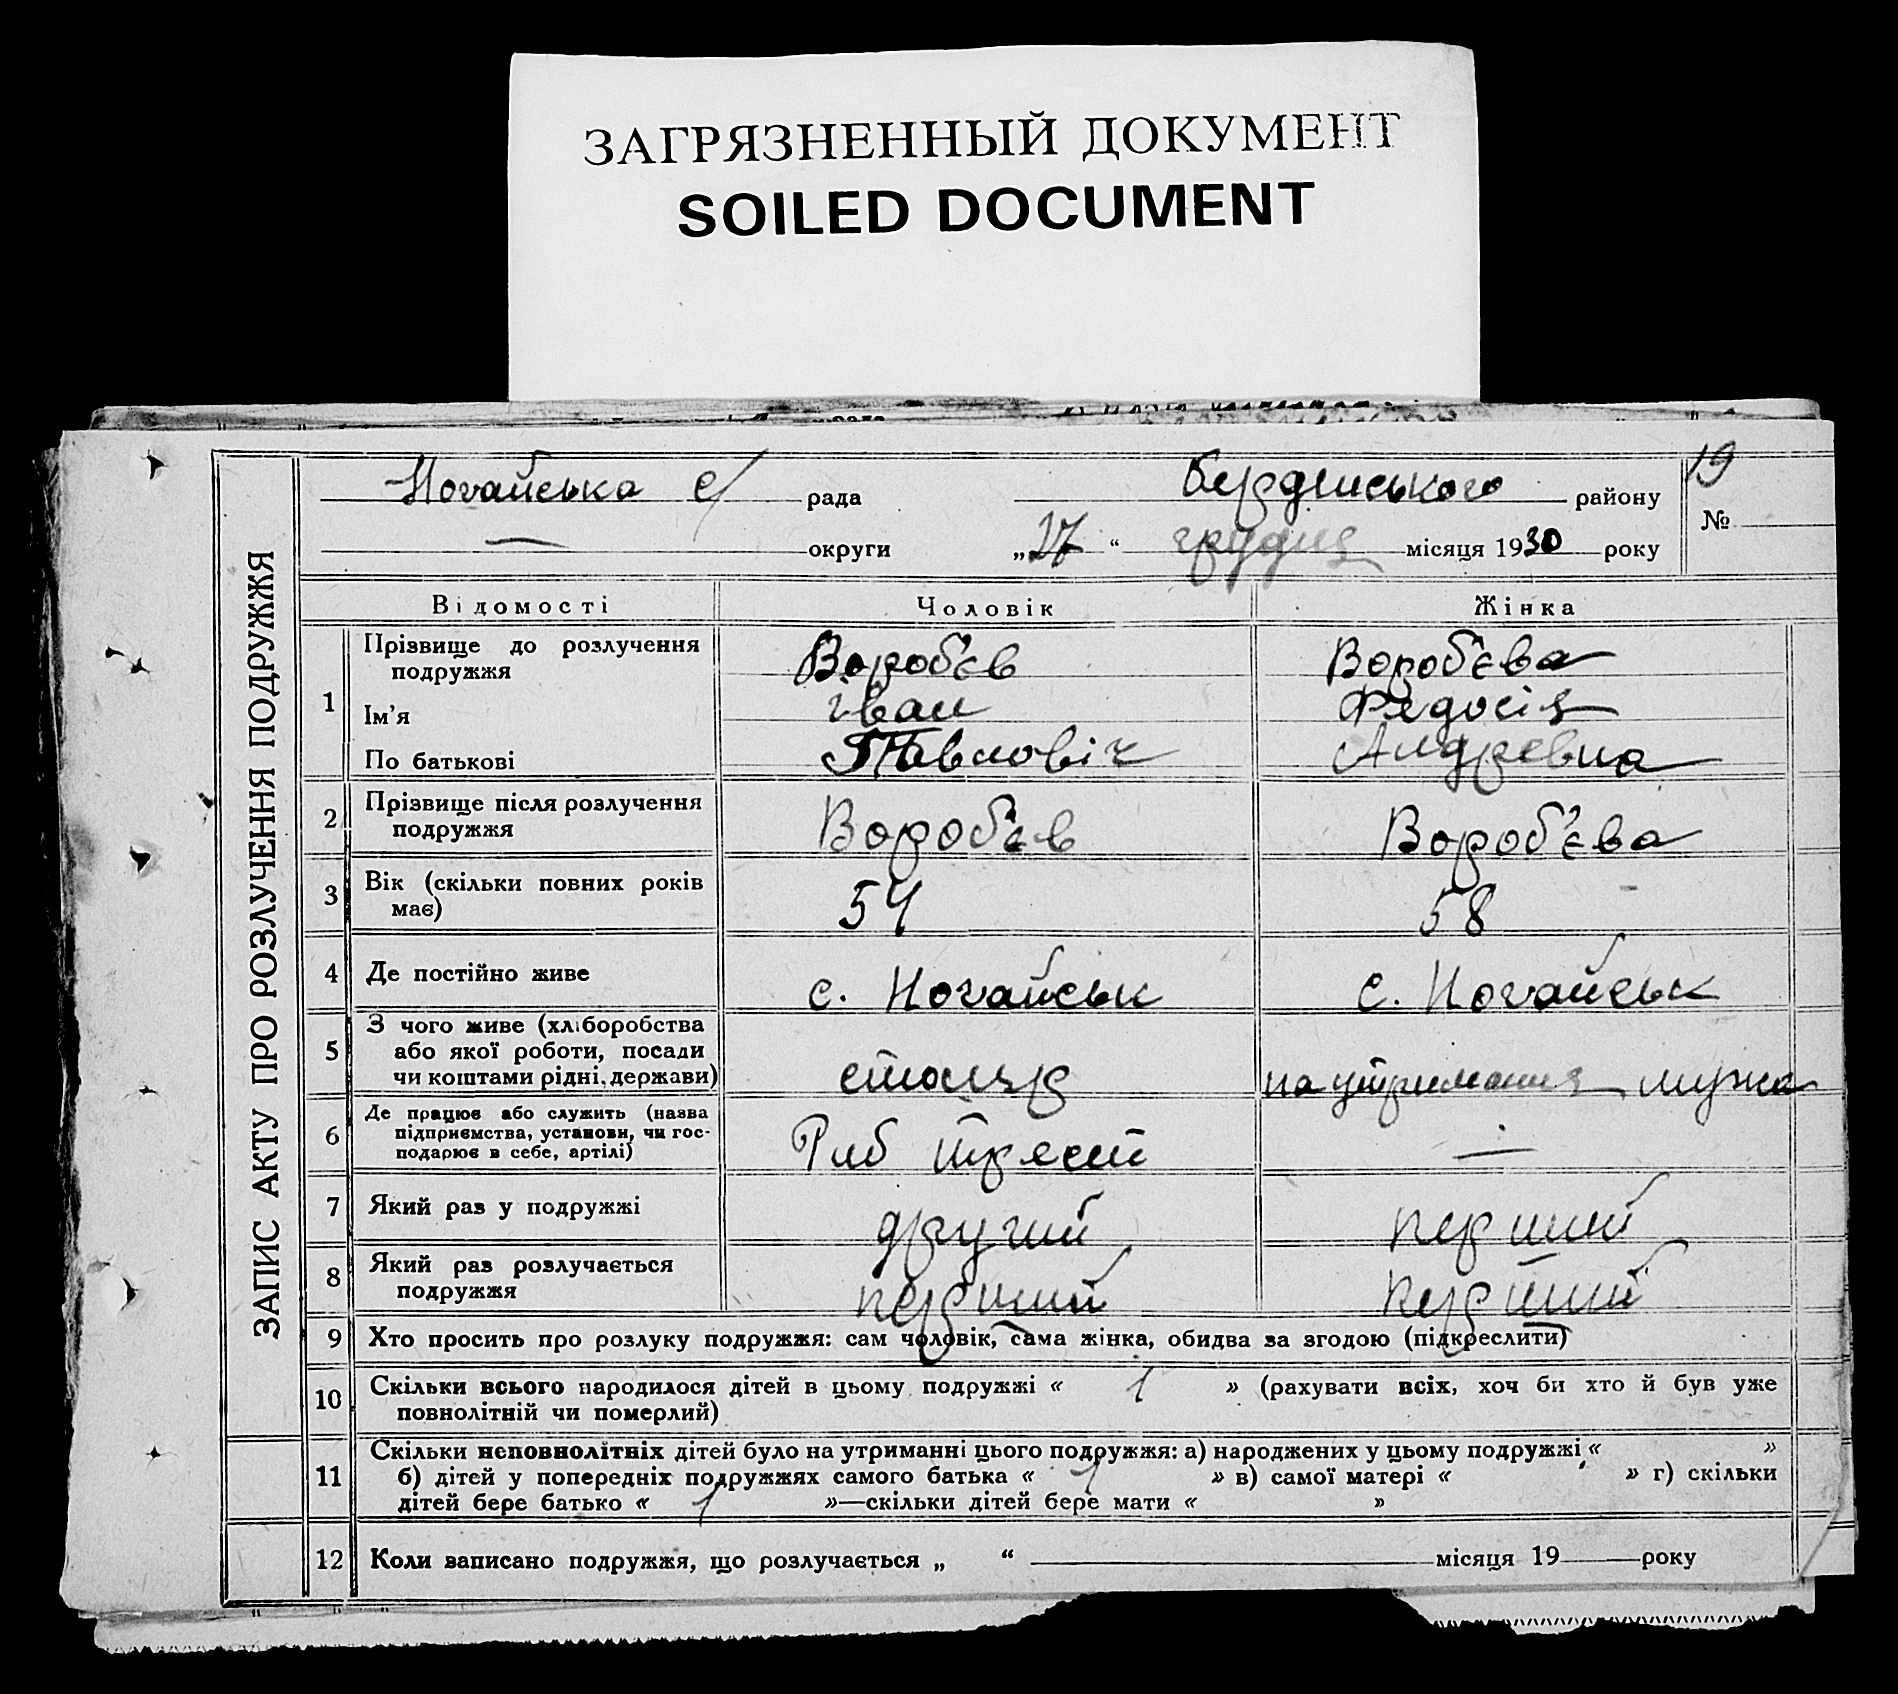 ЗАГРЯЗНЕННЫЙ ДОКУМЕНТ
SOILED DOCUMENT
ЗАПИС АКТУ ПРО РОЗЛУЧЕННЯ ПОДРУЖЖЯ
Ногайська с/ рада Бердянського району 19
— округи „27“ грудня місяця 1930 року №
Відомості Чоловік Жінка
1 Прізвище до розлучення подружжя Вороб'єв Вороб'єва
Ім'я Іван Федосія
По батькові Павловіч Андревна
2 Прізвище після розлучення подружжя Вороб'єв Вороб'єва
3 Вік (скільки повних років має) 54 58
4 Де постійно живе с. Ногайськ с. Ногайськ
5 З чого живе (хліборобства або якої роботи, посади чи коштами рідні, держави) столяр на утримания мужа
6 Де працює або служить (назва підприємства, установи, чи господарює в себе, артілі) Риб трест —
7 Який раз у подружжі другий перший
8 Який раз розлучається подружжя перший перший
9 Хто просить про розлуку подружжя: сам чоловік, сама жінка, обидва за згодою (підкреслити)
10 Скільки всього народилося дітей в цьому подружжі « 1 » (рахувати всіх, хоч би хто й був уже
повнолітній чи померлий)
11 Скільки неповнолітніх дітей було на утриманні цього подружжя: а) народжених у цьому подружжі « »
б) дітей у попередніх подружжях самого батька « 1 » в) самої матері « » г) скільки
дітей бере батько « 1 »—скільки дітей бере мати « »
12 Коли записано подружжя, що розлучається „ “ місяця 19 року